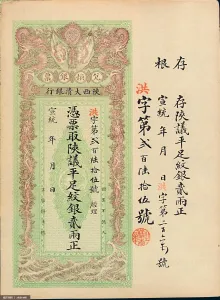 存根
存陝議平足紋銀貳兩正
宣統 年 月 日洪字第
洪字第貳百陸拾伍號
兌換銀票
陝西大清銀行
洪字第貳百陸拾伍號 經理
憑票取陝議平足紋銀貳兩正
宣統 年 月 日